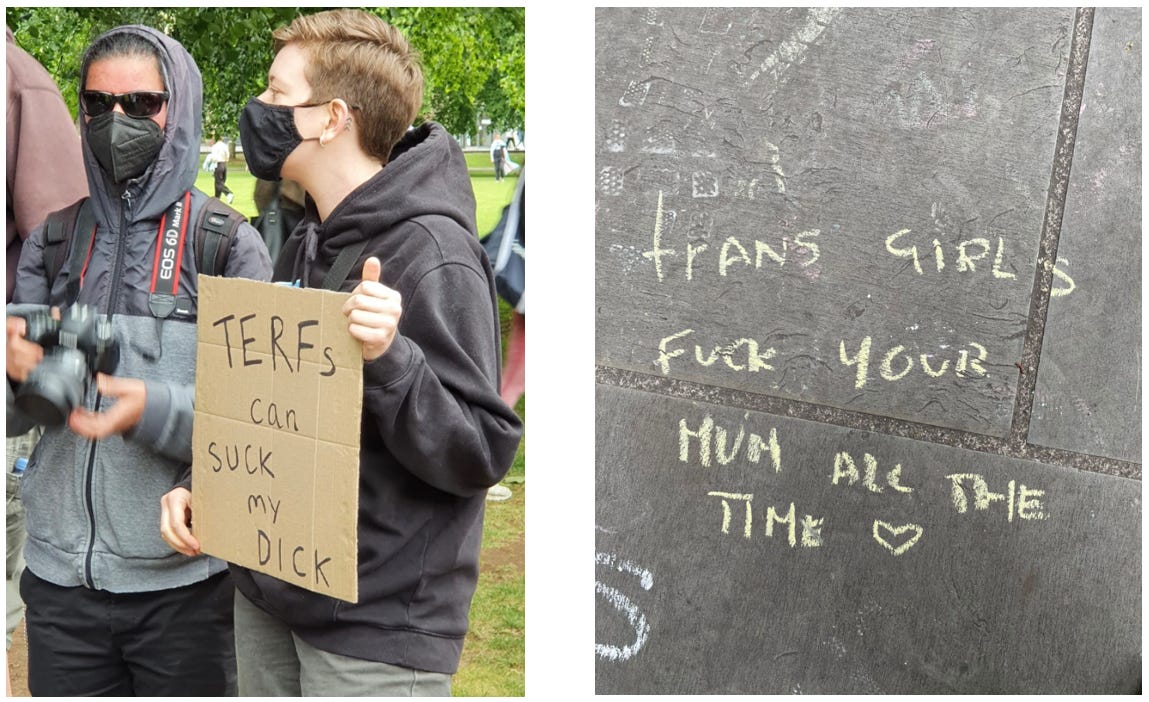 EOS 6D Mark II
TERFs
can
SUCK
my
DICK
trANS GIRLS
FUCK YOUR
MUM ALL THE
TIME ♡
S